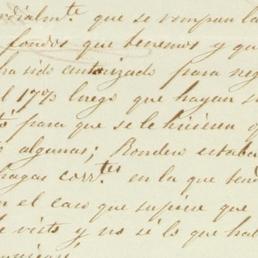 cordialmte. que se rompan la
fondos que tenemos y qu
ha sido autorizado para neg
l 1773 luego que hayan s
ó para que se le hiciesen o
ó algunas; Rondeu estaba
hagas corrtes en la que ten
en el caso que supiese que
e visto y no sé lo que hal